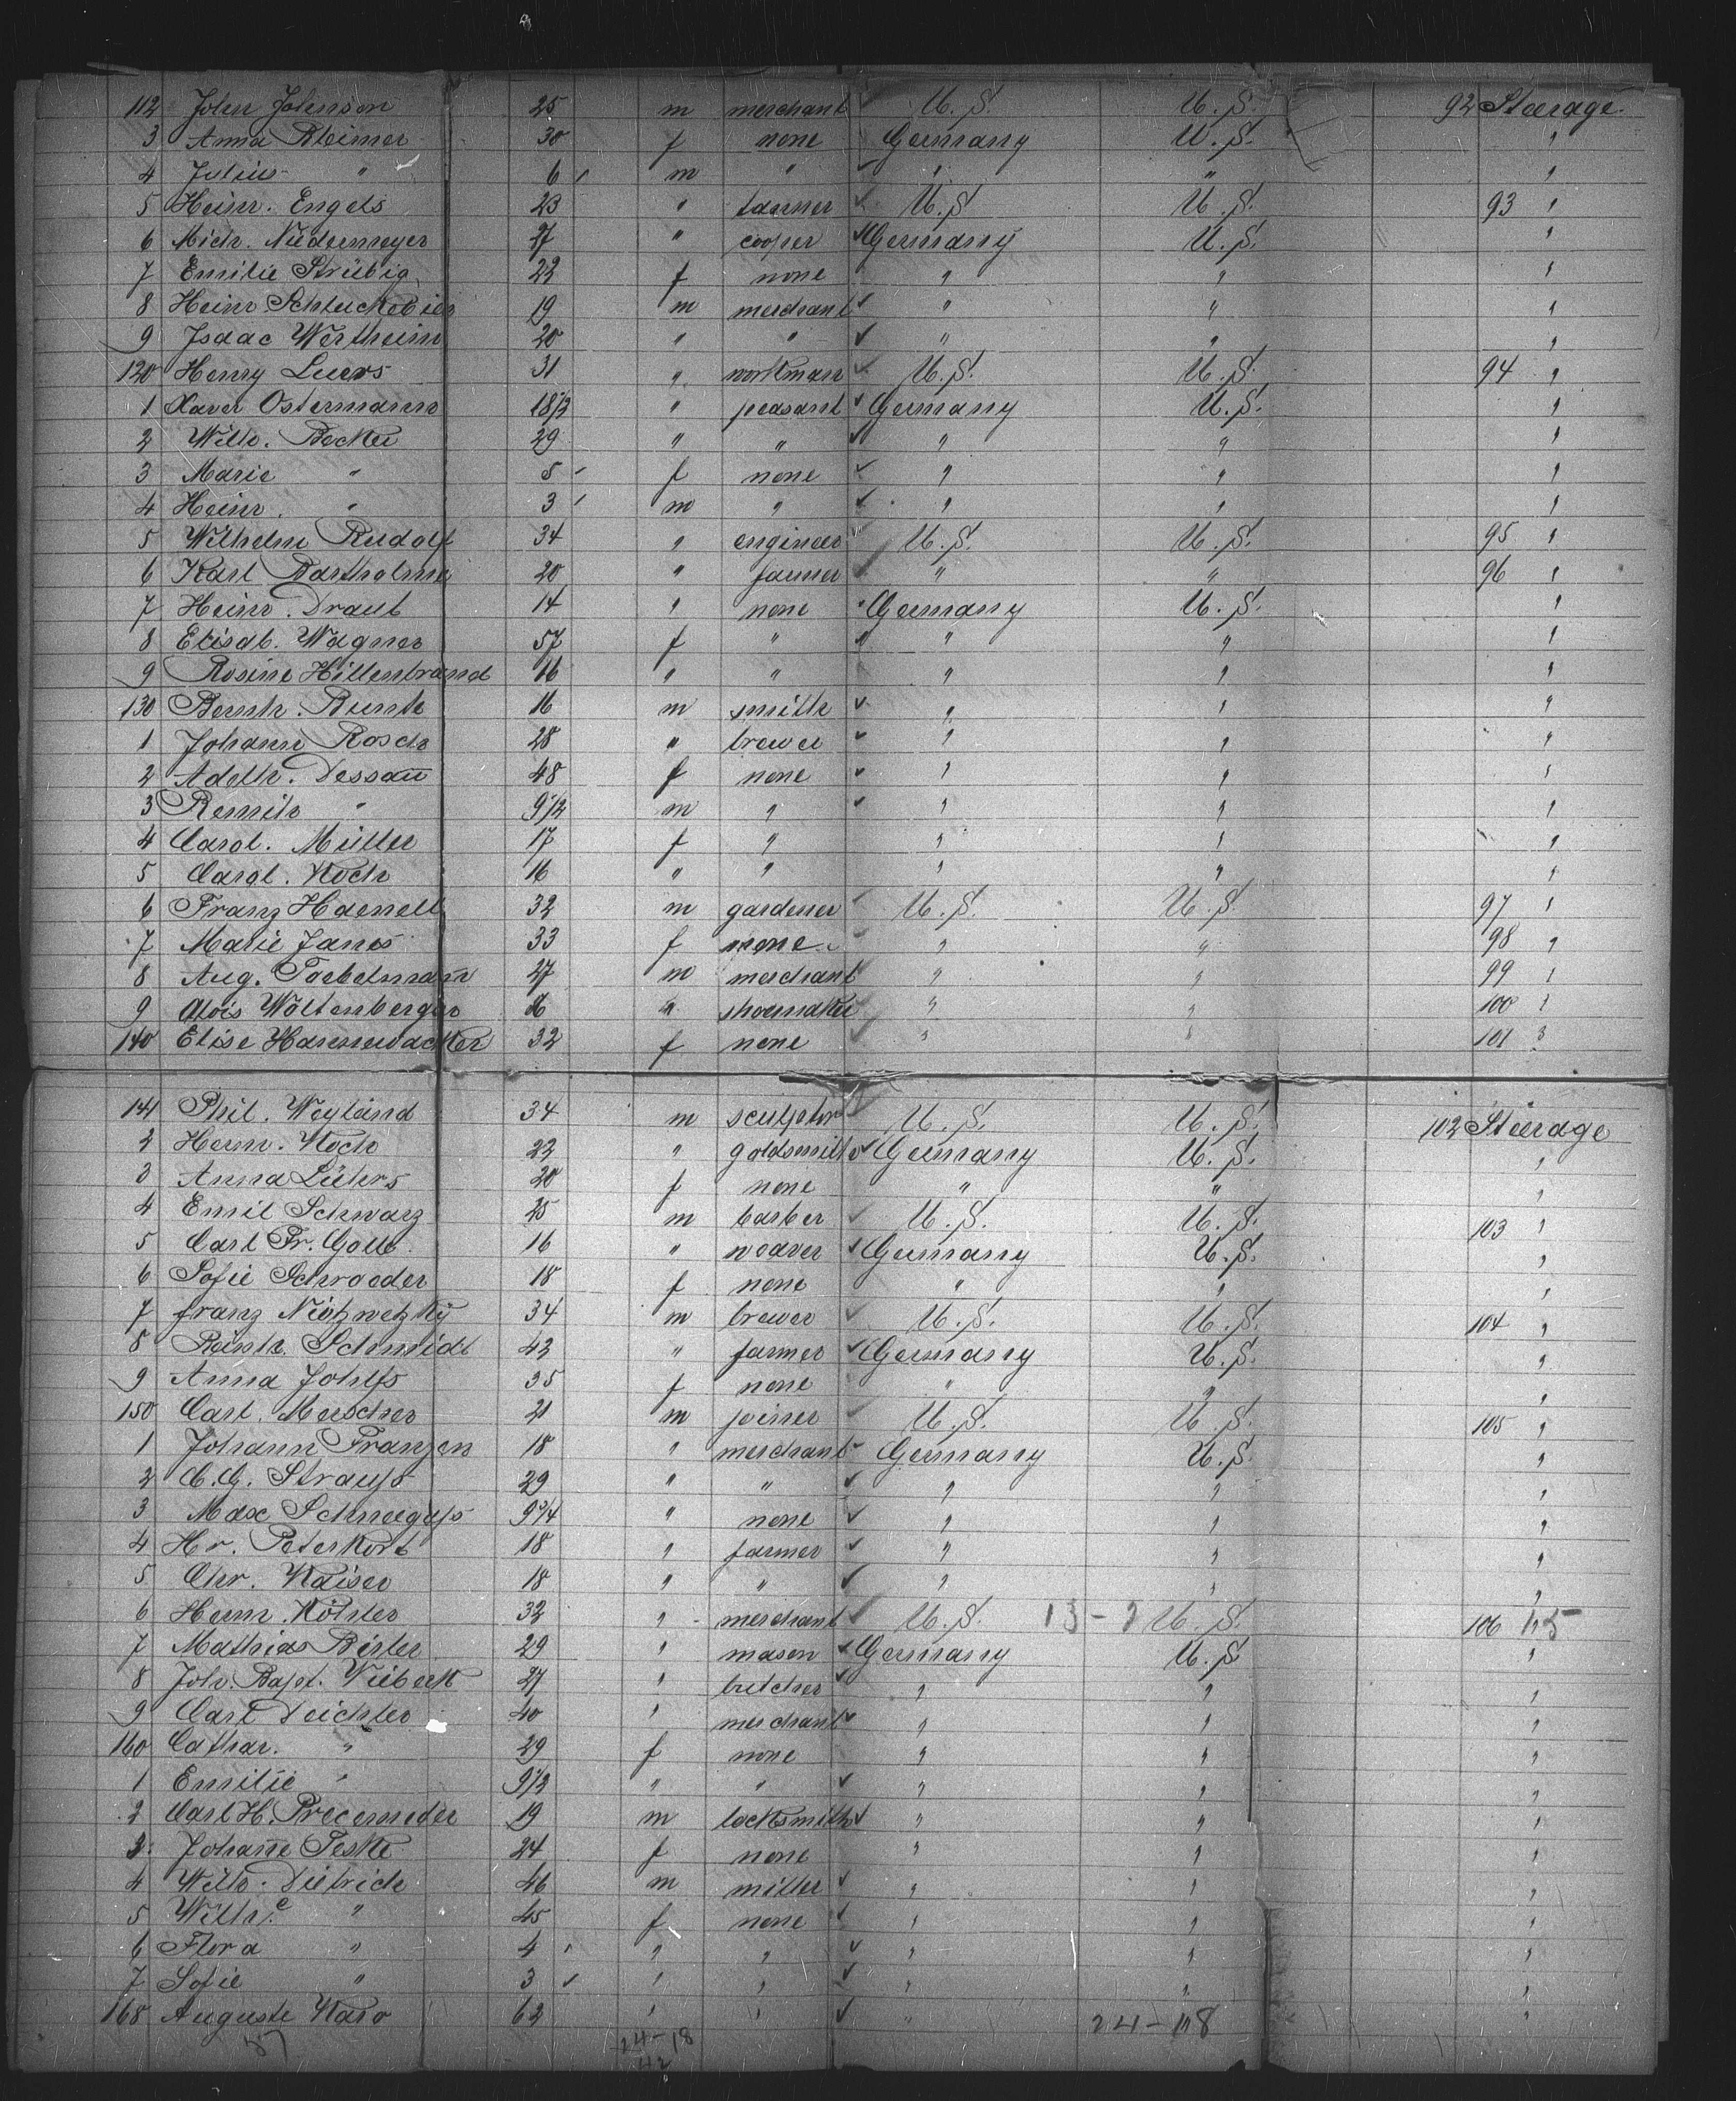 112 John Johnson 25 m merchant U.S. U.S. 92 Steerage
3 Anna Bleimer 30 f none Germany U.S. "
4 Julius " 6 m " " " "
5 Heinr. Engels 23 " farmer U.S. U.S. 93 "
6 Mich. Niedermeyer 27 " cooper Germany U.S. "
7 Emilie Strübig 22 f none " " "
8 Heinr Schluckebier 19 m merchant " " "
9 Isaac Wertheim 20 " " " " "
120 Henry Luers 31 " workman U.S. U.S. 94 "
1 Xaver Ostermann 18 1/2 " peasant Germany U.S. "
2 Wilh. Becker 29 " " " " "
3 Marie " 5 f none " " "
4 Heinr. " 3 m " " " "
5 Wilhelm Rudolf 34 " engineer U.S. U.S. 95 "
6 Karl Bartholme 20 " farmer " " 96 "
7 Heinr. Draut 14 " none Germany U.S. "
8 Elisab. Wagner 57 f " " " "
9 Rosine Hillenbrand 16 " " " " "
130 Bernh. Bunte 16 m smith " " "
1 Johann Rosch 28 " brewer " " "
2 Adelh. Dessau 48 f none " " "
3 " 9 1/2 m " " " "
4 Carol. Müller 17 f " " " "
5 Carol. Koch 16 " " " " "
6 Franz Haenell 32 m gardener U.S. U.S. 97 "
7 Marie Janes 33 f none " " 98 "
8 Aug. Taebelmann 27 m merchant " " 99 "
9 Alois Woltenberger " shoemaker " " 100 "
140 Elise Hanenwacker 32 f none " " 101 "
141 Phil. Weyland 34 m sculptor U.S. U.S. 102 Steerage
2 Herm. Koch 22 " goldsmith Germany U.S. "
3 Anna Lührs 20 f none " " "
4 Emil Schwarz 25 m barber U.S. U.S. 103 "
5 Carl Fr. Golb 16 " weaver Germany U.S. "
6 Sofie Schroeder 18 f none " " "
7 Franz Niotzwetzky 34 m brewer U.S. U.S. 104 "
8 Reinh. Schmidt 42 " farmer Germany U.S. "
9 Anna Johlfs 35 f none " " "
150 Carl Merscher 21 m joiner U.S. U.S. 105 "
1 Johann Franzen 18 " merchant Germany U.S. "
2 C.G. Strauss 29 " " " " "
3 Max Schneegass 9 3/4 " none " " "
4 Hr. Peterkort 18 " farmer " " "
5 Chr. Kaiser 18 " " " " "
6 Herm. Köhler 32 " merchant U.S. 13-2 U.S. 106 "
7 Mathias Birler 29 " mason Germany U.S. "
8 Joh. Bapt. Viebert 27 " butcher " " "
9 Carl Deichler 40 " merchant " " "
160 Cathar. " 29 f none " " "
1 Emilie " 9 1/2 " " " " "
2 Carl H. Precemeder 19 m locksmith " " "
3 Johanne Teske 24 f none " " "
4 Wilh. Dietrich 46 m miller " " "
5 Wilh.e " 45 f none " " "
6 Flora " 4 " " " " "
7 Sofie " 3 " " " " "
168 Auguste Karo 62 " " " 24-18 "
57 24-18
42